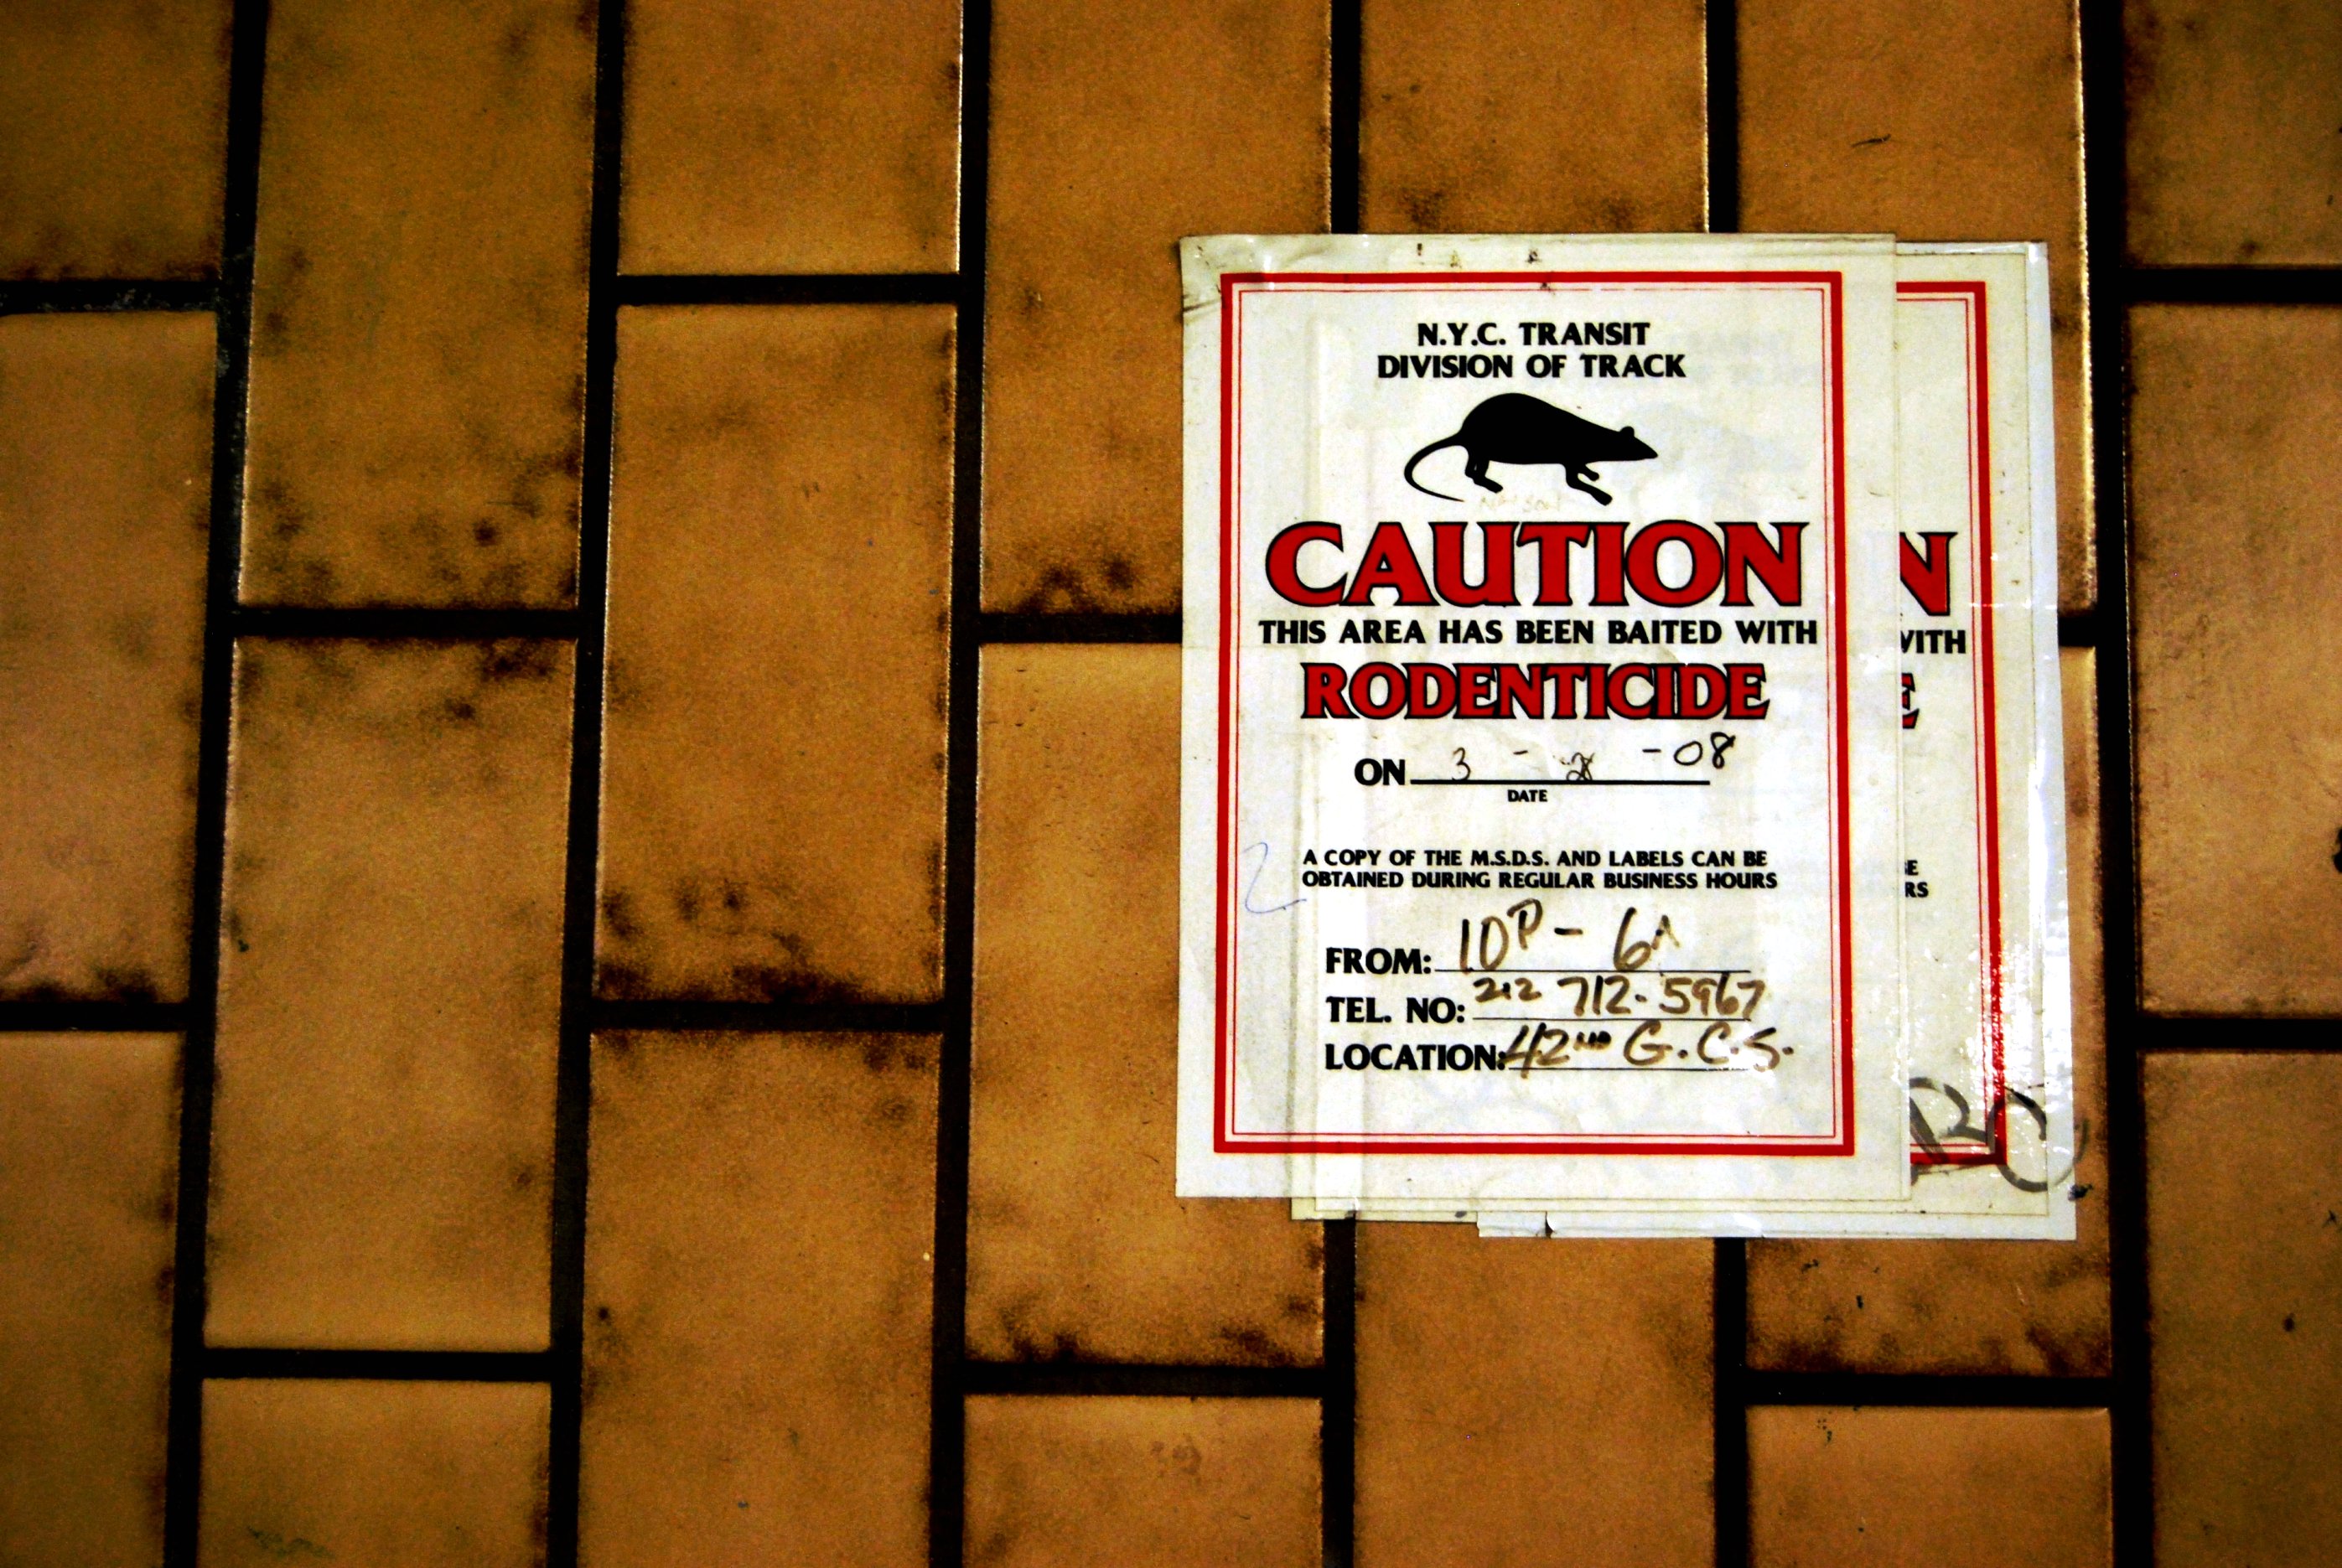 N.Y.C. TRANSIT
DIVISION OF TRACK
CAUTION
THIS AREA HAS BEEN BAITED WITH
RODENTICIDE
ON 3 - - 08
DATE
A COPY OF THE M.S.D.S. AND LABELS CAN BE
OBTAINED DURING REGULAR BUSINESS HOURS
FROM: 10P - 6A
TEL. NO: 212 712-5967
LOCATION: 42ND G.C.S.
2
N
WITH
E
BE
RS